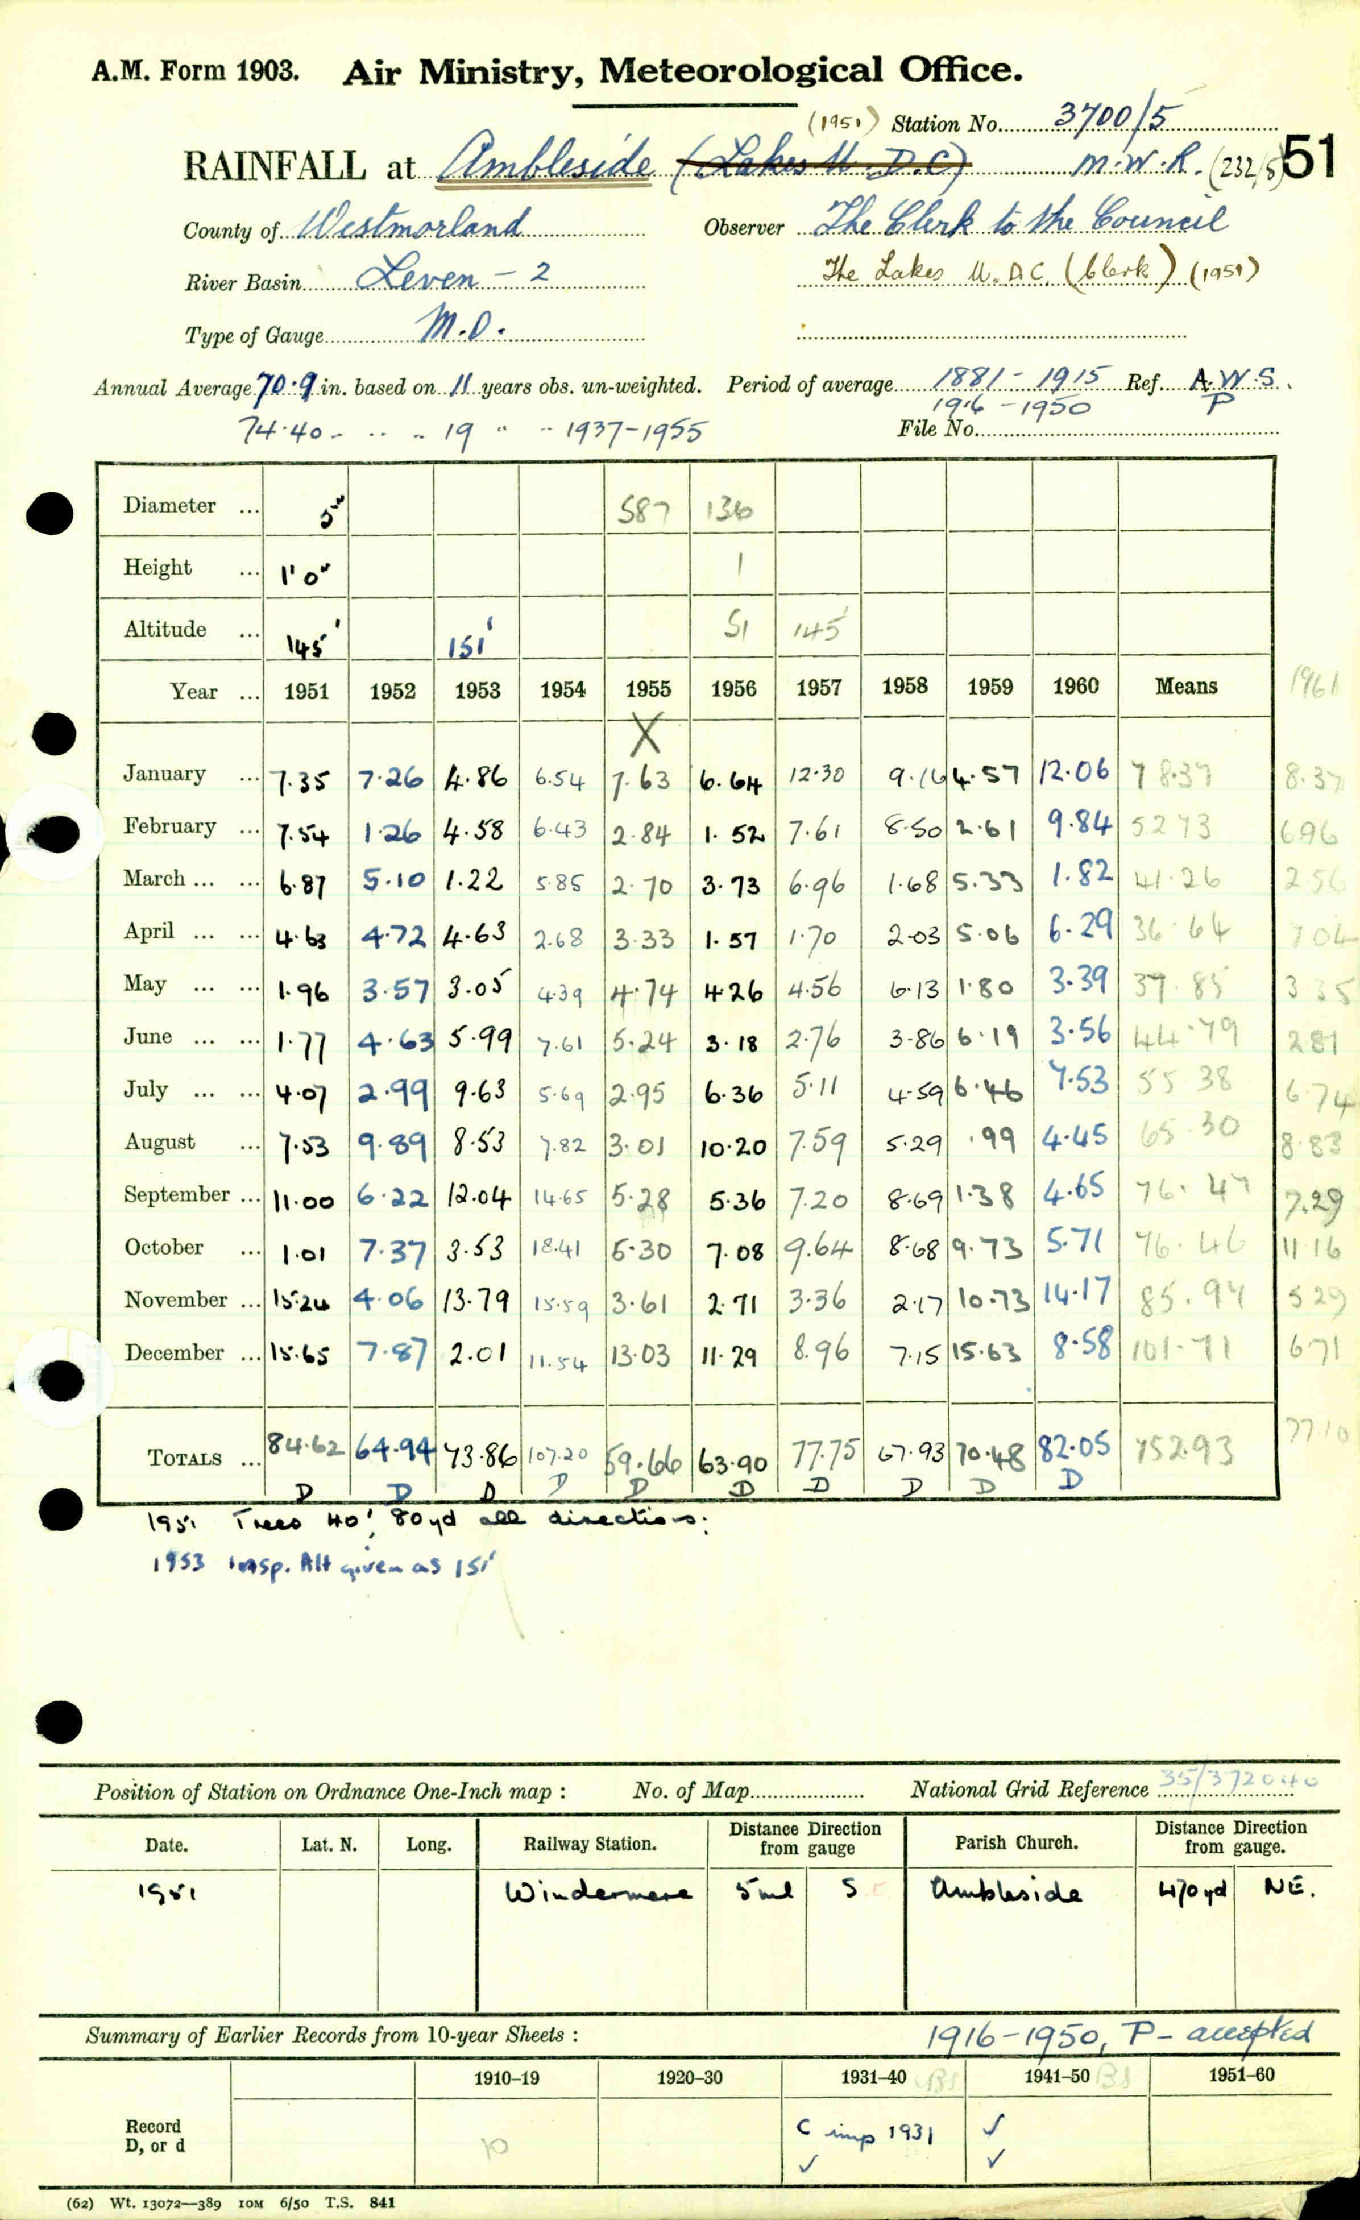 A.M. Form 1903. Air Ministry, Meteorological Office.
(1951) Station No. 3700/5
RAINFALL at Ambleside (Lakes U.D.C) M.W.R. (232/8) 51
County of Westmorland Observer The Clerk to the Council
River Basin Leven - 2 The Lakes U.D.C. (Clerk) (1951)
Type of Gauge M.O.
Annual Average 70.9 in. based on 11 years obs. un-weighted. Period of average 1881-1915 Ref. A.W.S.
1916-1950 P
74.40 " " " 19 " " 1937-1955 File No.
Diameter ... 5" 587 136
Height ... 1'0" 1
Altitude ... 145' 151' 51 145'
Year ... 1951 1952 1953 1954 1955 1956 1957 1958 1959 1960 Means 1961
X
January ... 7.35 7.26 4.86 6.54 7.63 6.64 12.30 9.16 4.57 12.06 78.37 8.37
February ... 7.54 1.26 4.58 6.43 2.84 1.52 7.61 8.50 2.61 9.84 52 73 696
March ... ... 6.87 5.10 1.22 5.85 2.70 3.73 6.96 1.68 5.33 1.82 41.26 256
April ... ... 4.63 4.72 4.63 2.68 3.33 1.57 1.70 2.03 5.06 6.29 36.64 704
May ... ... 1.96 3.57 3.05 4.39 4.74 4.26 4.56 6.13 1.80 3.39 37.85 335
June ... ... 1.77 4.63 5.99 7.61 5.24 3.18 2.76 3.86 6.19 3.56 44.79 281
July ... ... 4.07 2.99 9.63 5.69 2.95 6.36 5.11 4.59 6.46 7.53 55 38 6.74
August ... 7.53 9.89 8.53 7.82 3.01 10.20 7.59 5.29 .99 4.45 65.30 8.83
September ... 11.00 6.22 12.04 14.65 5.28 5.36 7.20 8.69 1.38 4.65 76.47 7.29
October ... 1.01 7.37 3.53 18.41 6.30 7.08 9.64 8.68 9.73 5.71 76.46 11 16
November ... 15.24 4.06 13.79 15.59 3.61 2.71 3.36 2.17 10.73 14.17 85.94 529
December ... 15.65 7.87 2.01 11.54 13.03 11.29 8.96 7.15 15.63 8.58 101.71 671
TOTALS ... 84.62 64.94 73.86 107.20 59.66 63.90 77.75 67.93 70.48 82.05 752.93 7710
D D D D D D D D D D
1951 Trees 40', 80yd all directions.
1953 Insp. Alt given as 151'
Position of Station on Ordnance One-Inch map : No. of Map National Grid Reference 35/372040
Date. Lat. N. Long. Railway Station. Distance Direction from gauge Parish Church. Distance Direction from gauge.
1951 Windermere 5ml S E Ambleside 470yd NE.
Summary of Earlier Records from 10-year Sheets : 1916-1950, P - accepted
1910–19 1920–30 1931–40 1941–50 BS 1951–60
Record
D, or d
10 C imp 1931 ✓
✓ ✓
(62) Wt. 13072—389 10M 6/50 T.S. 841